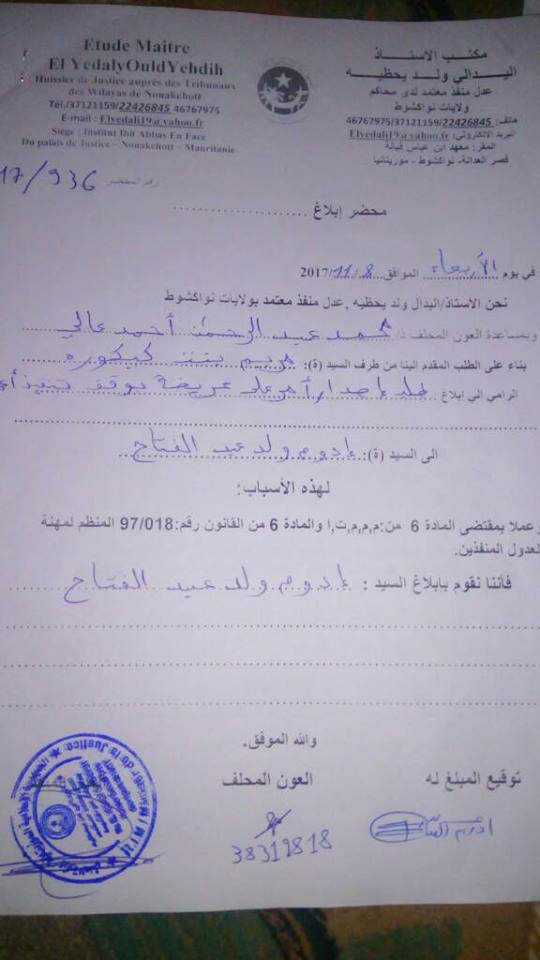 Etude Maitre
El YedalyOuldYehdih
Huissier de Justice auprès des Tribunaux
des Wilayas de Nouakchott
Tél./37121159/22426845 46767975
E-mail : Elyedali19@yahoo.fr
Siège : Institut Ibn Abbas En Face
Du palais de Justice – Nouakchott – Mauritanie
مكتب الاستاذ
اليدالي ولد يحظيه
عدل منفذ معتمد لدى محاكم
ولايات نواكشوط
هاتف: 46767975/37121159/22426845
البريد الالكتروني: Elyedali19@yahoo.fr
المقر: معهد ابن عباس قبالة
قصر العدالة- نواكشوط - موريتانيا
رقم المحضر 17/936
محضر إبلاغ
في يوم الأربعاء الموافق 8/11/2017
نحن الاستاذ/اليدال ولد يحظيه ,عدل منفذ معتمد بولايات نواكشوط
وبمساعدة العون المحلف ذ/ محمد عبد الرحمن أحمد عالي
بناء على الطلب المقدم الينا من طرف السيد (ة): مريم بنت
الرامي الي ابلاغ أمر على عريضة بوقف
الى السيد (ة): إدوم ولد عبد الفتاح
لهذه الأسباب:
وعملا بمقتضى المادة 6 من:م,م,م,ت,ا والمادة 6 من القانون رقم:97/018 المنظم لمهنة
العدول المنفذين.
فأننا نقوم بابلاغ السيد : إدوم ولد عبد الفتاح
والله الموفق.
توقيع المبلغ له
العون المحلف
38319818